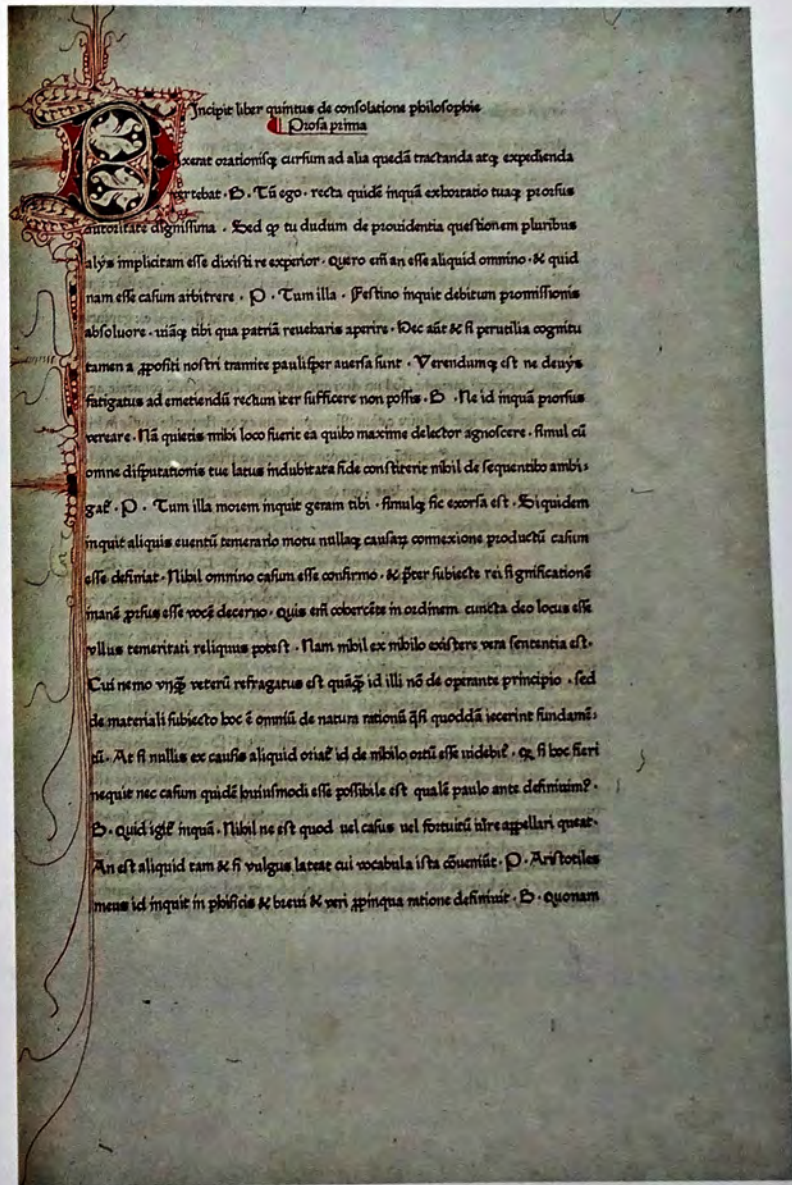 Incipit liber quintus de consolatione philosophie
Prosa prima
Dixerat orationisq; cursum ad alia quedā tractanda atq; expedienda
vertebat · B · Tū ego · recta quidē inquā exhortatio tuaq; prorsus
autoritate dignissima · Sed ꝙ tu dudum de prouidentia questionem pluribus
alijs implicitam esse dixisti re experior · quero em̄ an esse aliquid omnino · & quid
nam esse casum arbitrere · P · Tum illa · Festino inquit debitum promissionis
absoluore · uiāq; tibi qua patriā reueharis aperire · Hec aūt & si perutilia cognitu
tamen a ꝓpositi nostri tramite paulisper auersa sunt · Verendumq; est ne deuijs
fatigatus ad emetiendū rectum iter sufficere non possis · B · Ne id inquā prorsus
vereare · Nā quietis mihi loco fuerit ea quibꝰ maxime delector agnoscere · simul cū
omne disputationis tue latus indubitata fide constiterit nihil de sequentibꝰ ambi-
gat᷑ · P · Tum illa morem inquit geram tibi · simulq; sic exorsa est · Siquidem
inquit aliquis euentū temerario motu nullaq; causaꝝ connexione productū casum
esse definiat · Nihil omnino casum esse confirmo · & p̄ter subiecte rei significationē
inanē ꝓrsus esse vocē decerno · quis em̄ cohercēte in ordinem cuncta deo locus esse
vllus temeritati reliquus potest · Nam nihil ex nihilo existere vera sententia est ·
Cui nemo vnꝙ̄ veterū refragatus est quāꝙ̄ id illi nō de operante principio · sed
de materiali subiecto hoc ē omniū de natura rationū q̄si quoddā iecerint fundamē-
tū · At si nullis ex causis aliquid oriat᷑ id de nihilo ortū esse uidebit᷑ · ꝙ si hoc fieri
nequit nec casum quidē huiusmodi esse possibile est qualē paulo ante definiuimꝰ ·
B · quid igit᷑ inquā · Nihil ne est quod uel casus uel fortuitū iure appellari queat ·
An est aliquid tam & si vulgus lateat cui vocabula ista cōueniūt · P · Aristotiles
meus id inquit in phisicis & breui & veri ꝓpinqua ratione definiuit · B · quonam